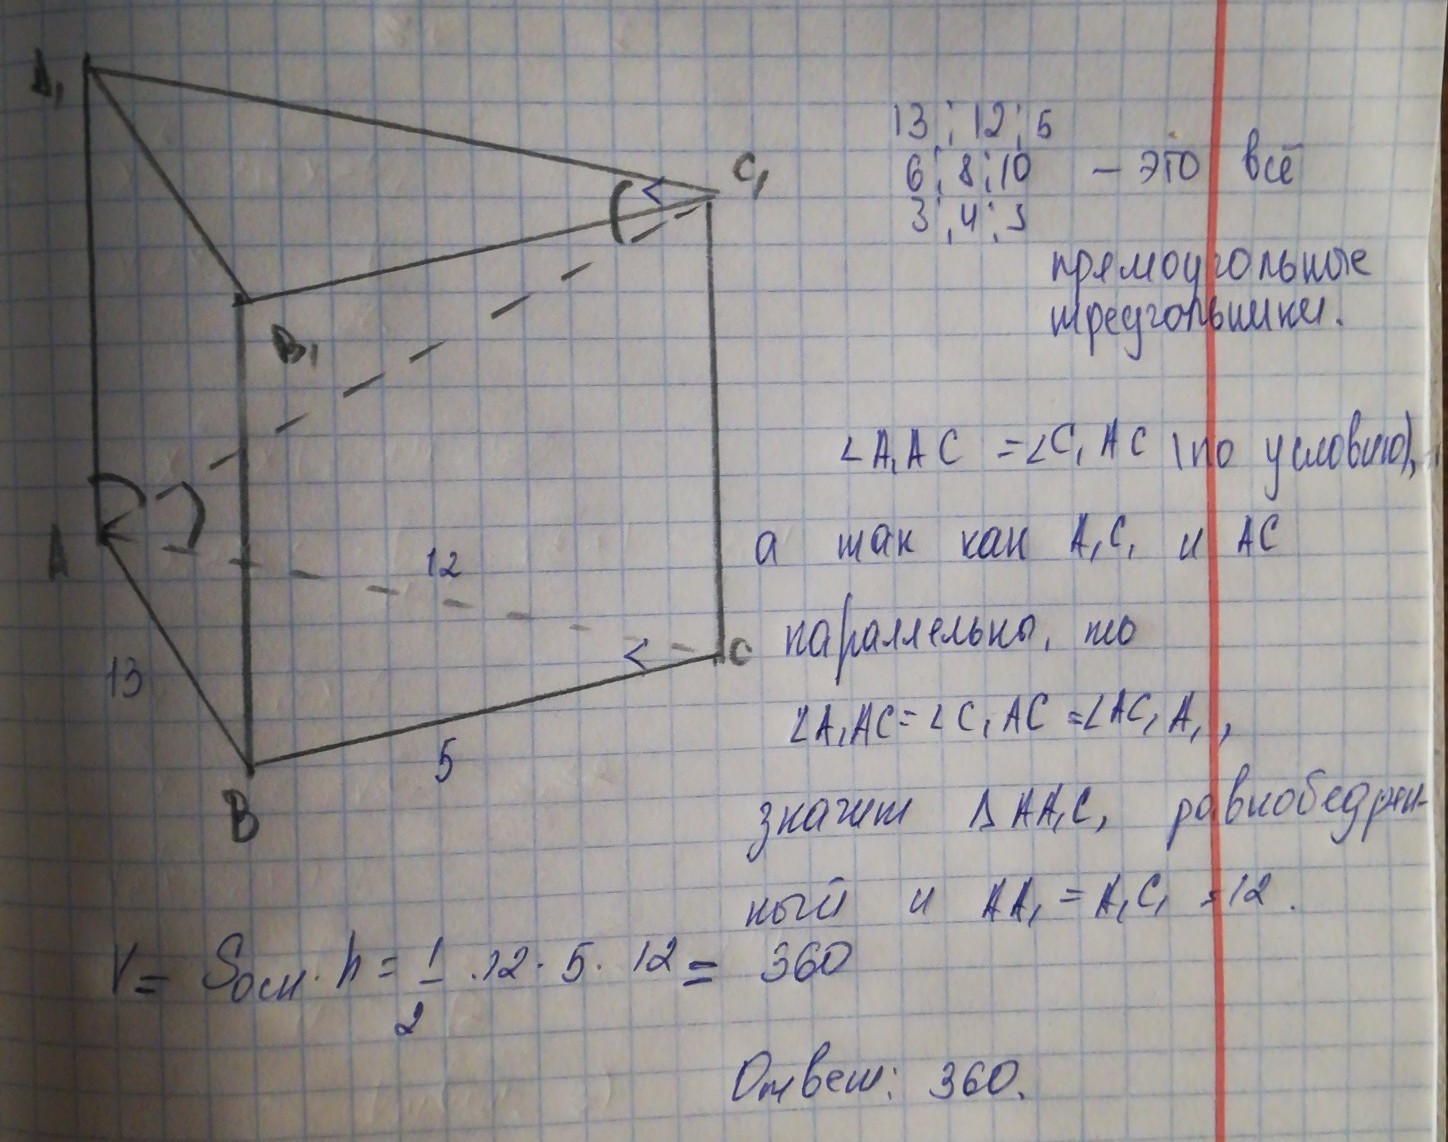 A₁
C₁
B₁
A
12
C
13
5
B
13; 12; 5
6; 8; 10 — это всё
3; 4; 5
прямоугольные
треугольники.
∠A₁AC = ∠C₁AC (по условию),
а так как A₁C₁ и AC
параллельны, то
∠A₁AC = ∠C₁AC = ∠AC₁A₁,
значит ΔAA₁C₁ равнобедрен-
ный и AA₁ = A₁C₁ = 12.
V = Sосн · h = 1/2 · 12 · 5 · 12 = 360
Ответ: 360.